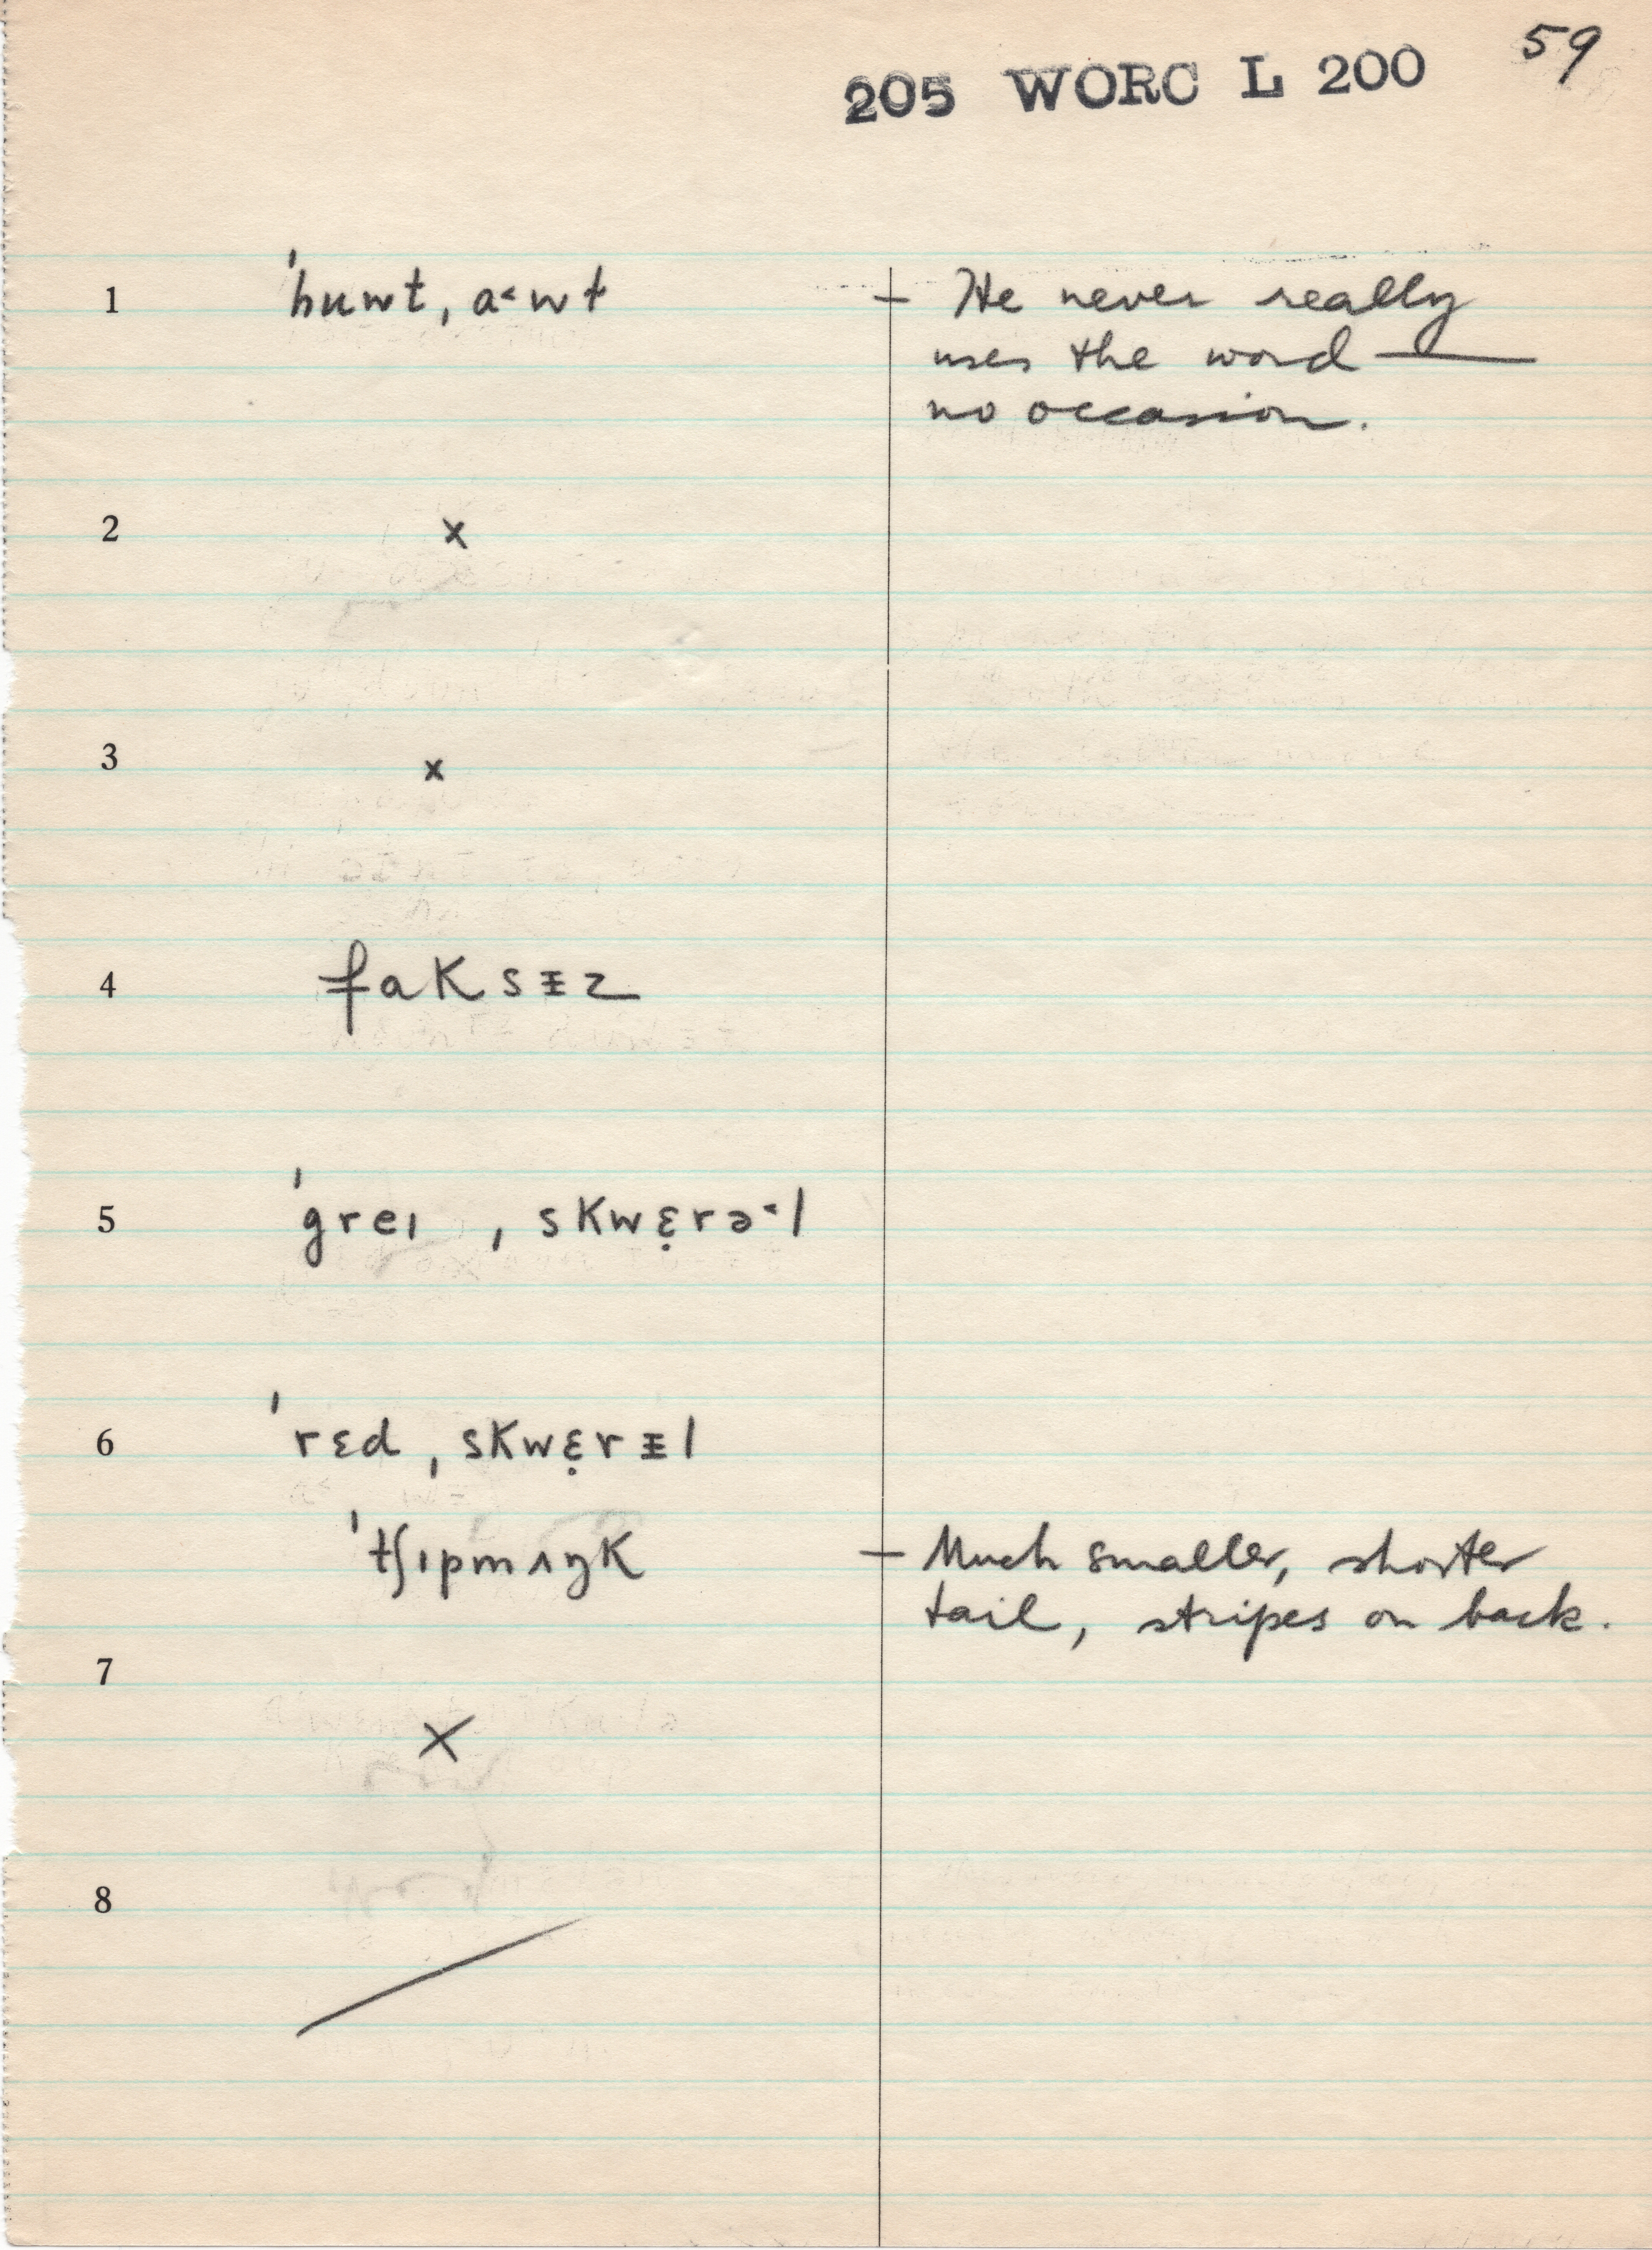 59
205 WORC L 200
1 ˈhuwt, a˂wt — He never really
uses the word —
no occasion.
2 x
3 x
4 faKsɪ̵z
5 ˈgreɪ ˌsKwɛ̣rə˂l
6 ˈrɛd ˌsKwɛ̣rɪ̵l
ˈtʃɪpmʌŋK — Much smaller, shorter
tail, stripes on back.
7 x
8 /